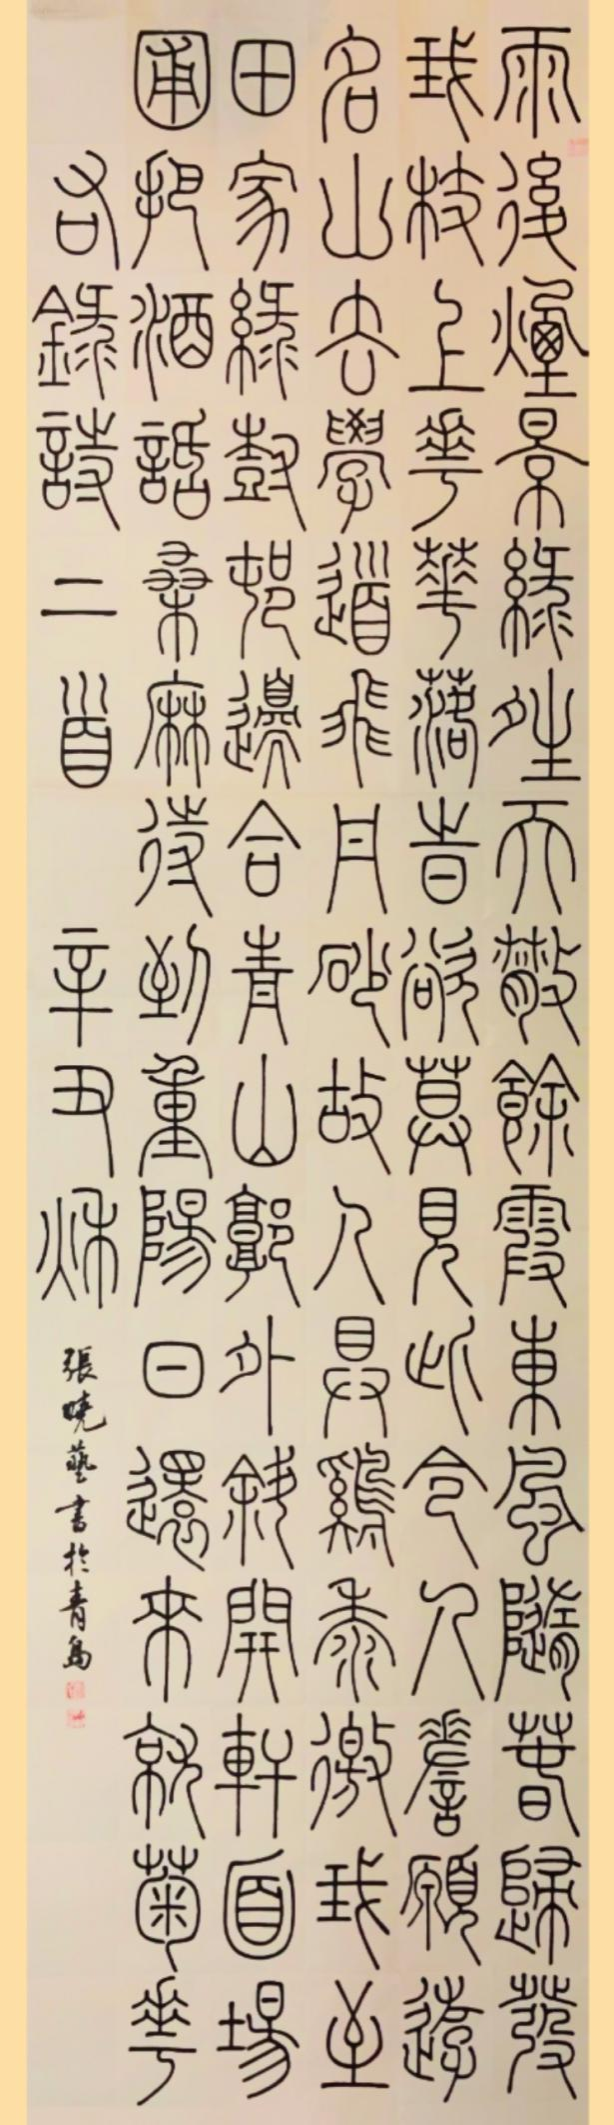 雨後煙景綠夝天散餘霞東風隨春歸發
我枝上華華落旹欲莫見此令人嗟願遊
名山去學道飛丹砂故人具雞黍徼我至
田家綠尌邨邊合青山郭外斜開軒面場
圃把酒話桑麻待到重陽日還來就菊華
右錄詩二首 辛丑秋 張曉藝書於青島